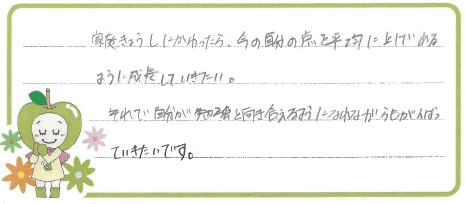 家庭きょうしにかわったら、今の自分の点を平均に上げれる
ように成長していきたい。
それで自分が勉強と向き合えるようになれながらもがんばっ
ていきたいです。